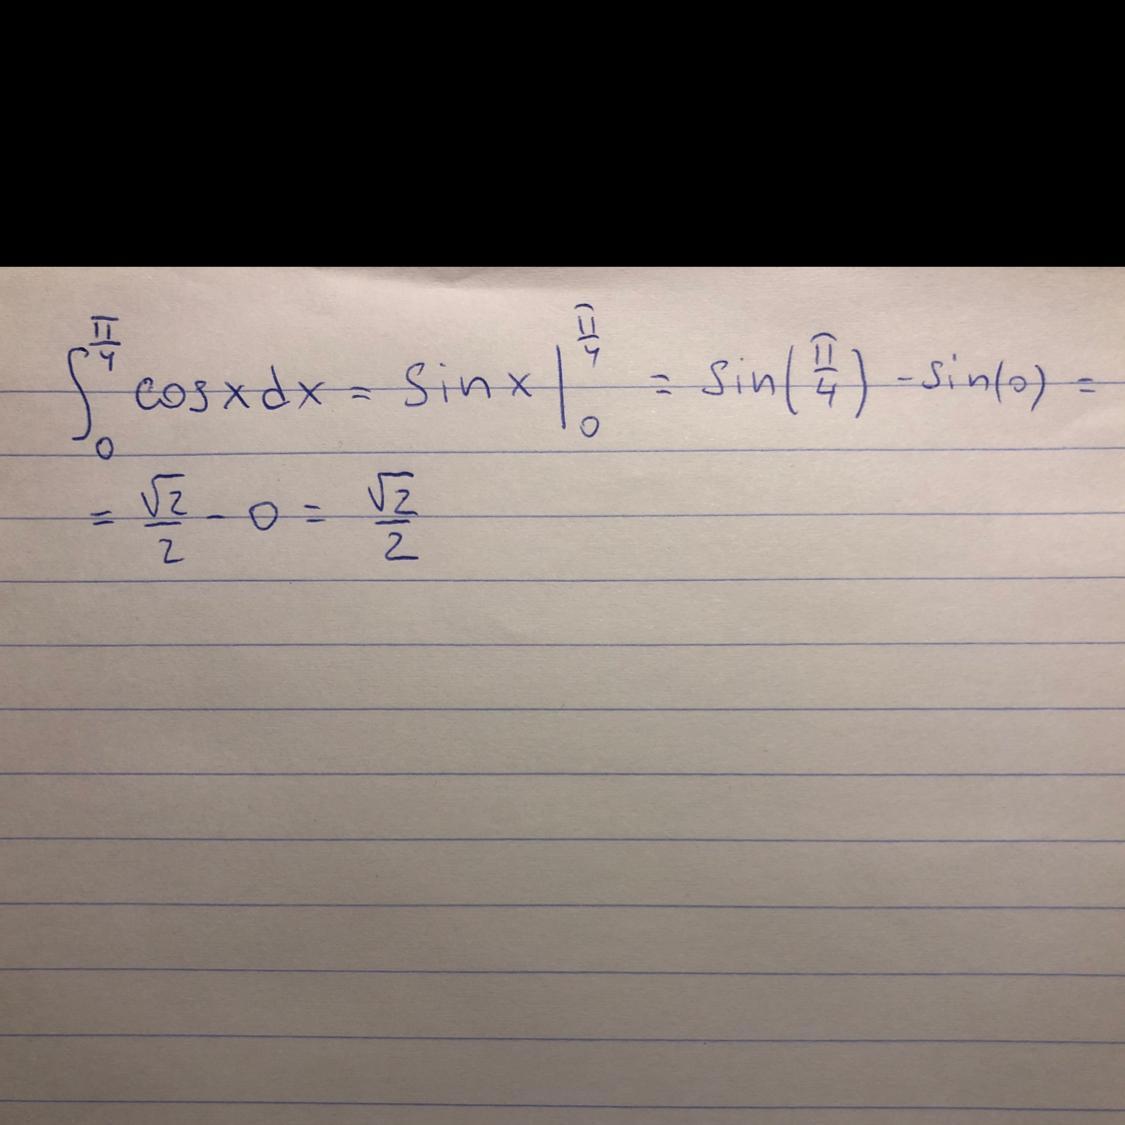 ∫₀^{π/4} cosxdx = sinx |₀^{π/4} = sin(π/4) - sin(0) =
= √2/2 - 0 = √2/2